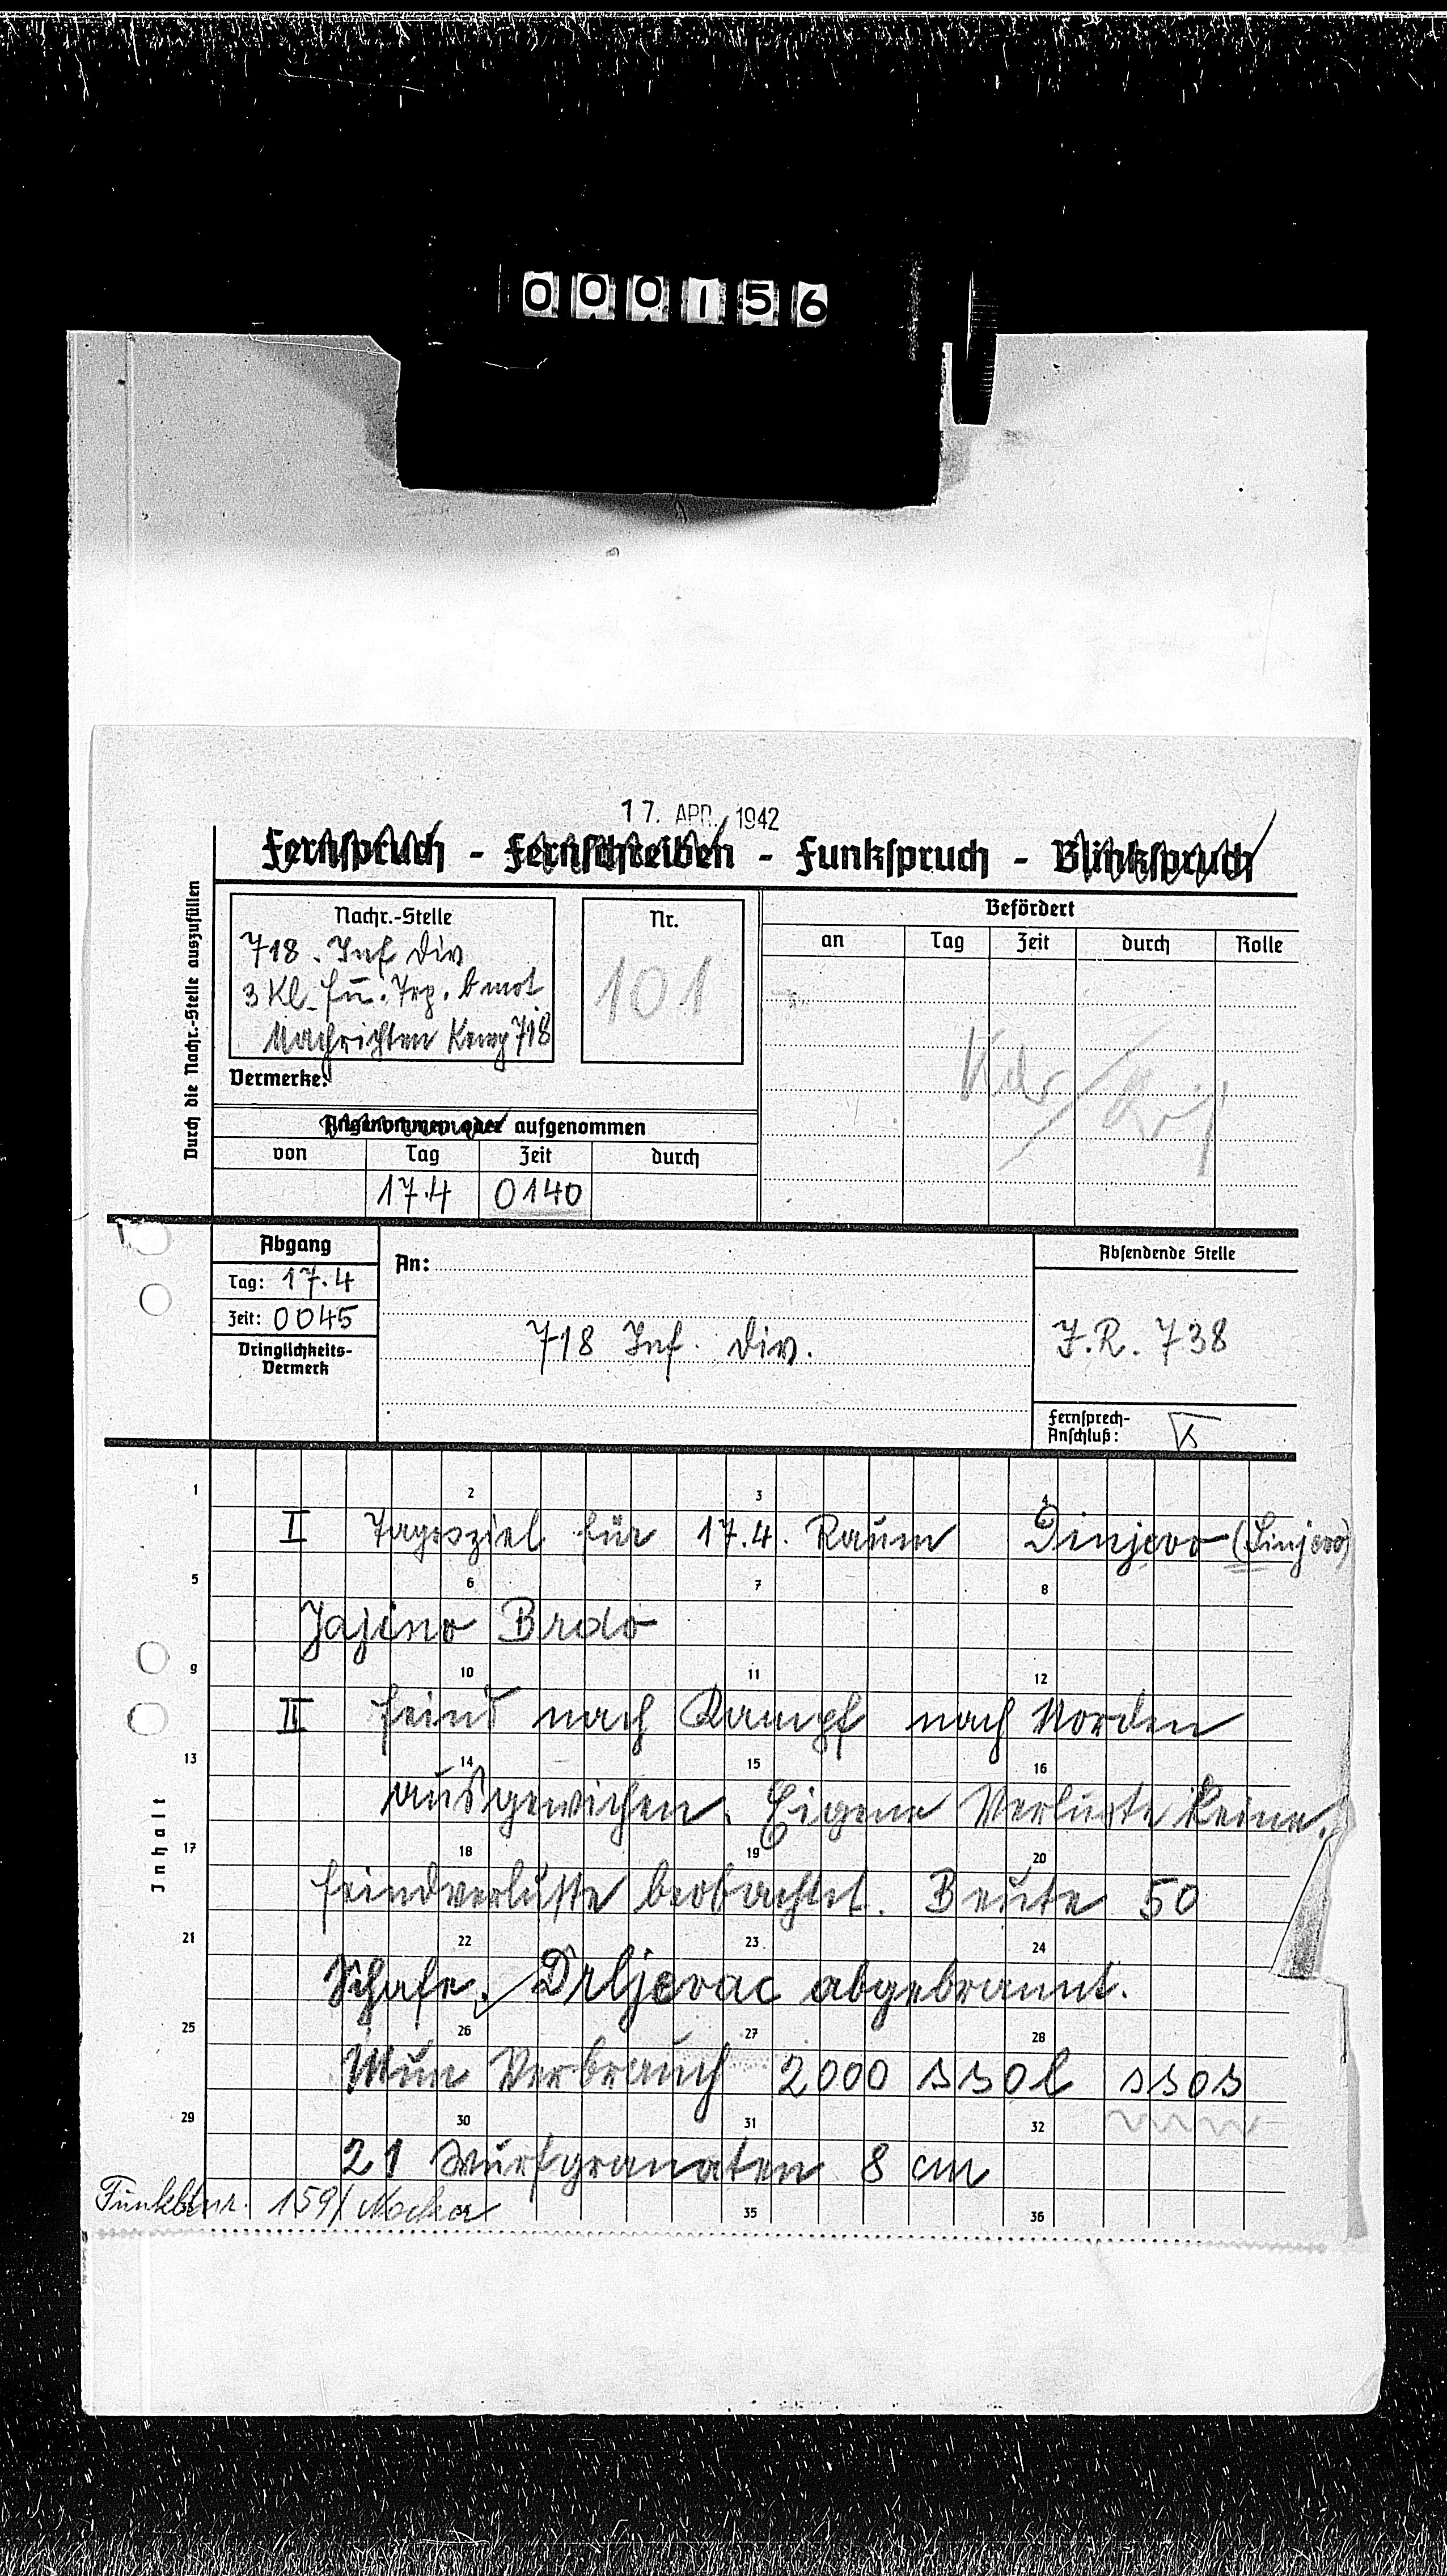 000156
17. APR. 1942
Fernspruch - Fernschreiben - Funkspruch - Blinkspruch
Durch die Nachr.-Stelle auszufüllen
Nachr.-Stelle
718. Inf Div
3 Kl. Fu. Trp. b mot
Nachrichten Komp 718
Nr.
101
Befördert
an Tag Zeit durch Rolle
Vermerke:
Angenommen oder aufgenommen
von Tag Zeit durch
17.4 0140
Abgang
Tag: 17.4
Zeit: 0045
Dringlichkeits-
Vermerk
An:
718 Inf. Div.
Absendende Stelle
J.R. 738
Fernsprech-
Anschluß:
Inhalt
1 2 3 4
I Tagesziel für 17.4. Raum Dinjevo (Linjevo)
5 6 7 8
Jajino Brdo
9 10 11 12
II Feind nach Kampf nach Norden
13 14 15 16
ausgewichen. Eigene Verluste keine.
17 18 19 20
Feindverluste beobachtet. Beute 50
21 22 23 24
Schafe. Drljevac abgebrannt.
25 26 27 28
Mun Verbrauch 2000 ssol ssos
29 30 31 32
21 Wurfgranaten 8 cm
35 36
159/